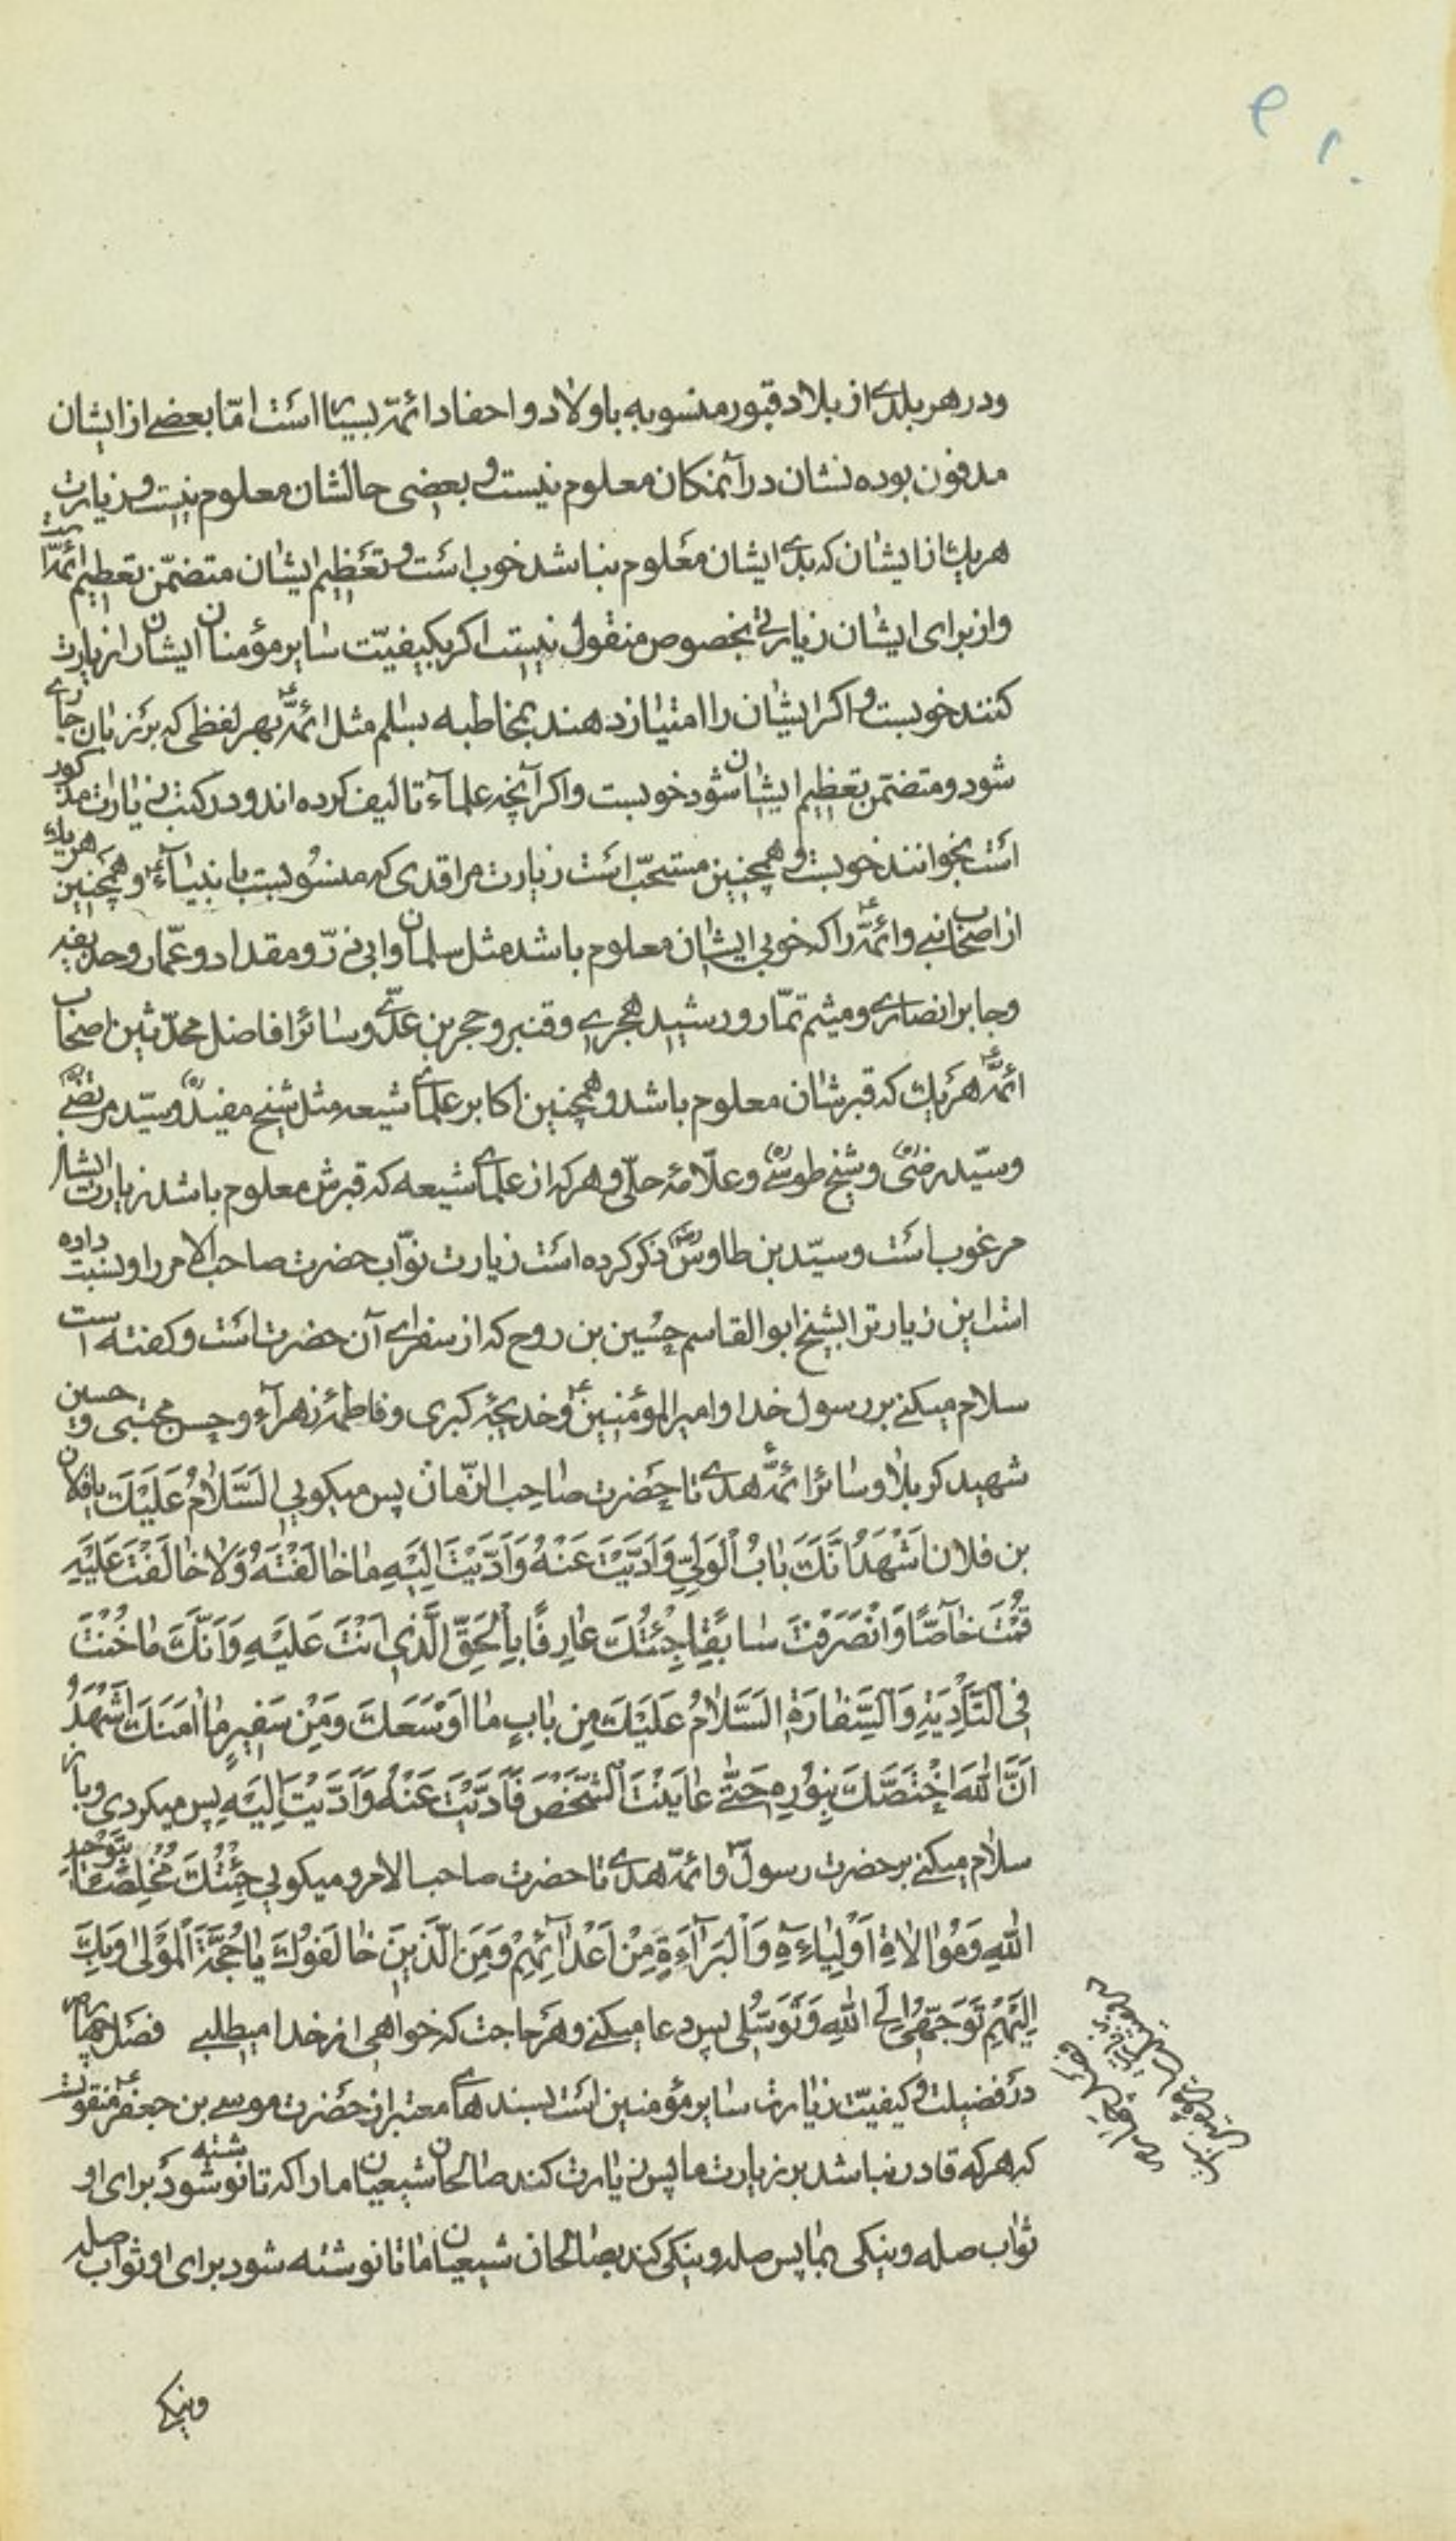 ودر هر بلدی از بلاد قبور منسوبه باولاد و احفاد ائمّه بسیار است امّا بعضی از ایشان
مدفون بوده نشان در آنمکان معلوم نیست و بعضی حالشان معلوم نیست و زیارت
هر یك از ایشان که بدی ایشان معلوم نباشد خوب است و تعظیم ایشان متضمّن تعظیم ائمّه است
واز برای ایشان زیارتی بخصوص منقول نیست اکر بکیفیّت سایر مؤمنان ایشان را زیارت
کنند خوبست و اکر ایشان را امتیاز دهند بمخاطبه بسلم مثل ائمّه ع بهر لفظی که بر زبان جاری
شود و متضمن تعظیم ایشان شود خوبست و اکر آنچه علمآء تالیف کرده اند و در کتب زیارات مذکور
است بخوانند خوبست و همچنین مستحبّ است زیارت مراقدی که منسوبست بانبیآء ع و همچنین هر یك
از اصحاب نبی و ائمّه ع را که خوبی ایشان معلوم باشد مثل سلمان و ابی ذرّ و مقداد و عمّار و حذیفه
وجابر انصاری و میثم تمّار و رشید هجری و قنبر و حجر بن عدّی و سائر افاضل محدّثین اصحاب
ائمّه ع هر یك که قبرشان معلوم باشد و همچنین اکابر علمای شیعه مثل شیخ مفید ره و سیّد مرتضی ره
وسیّد رضی ره و شیخ طوسی ره و علّامهٔ حلّی و هر که از علمای شیعه که قبرش معلوم باشد زیارت ایشان
مرغوب است و سیّد بن طاوس ره ذکر کرده است زیارت نوّاب حضرت صاحب الامر را و نسبت داده
است این زیارت را بشیخ ابو القاسم حسین بن روح که از سفرای آن حضرت است و کفته است
سلام میکنی بر رسول خدا و امیر المؤمنین ع و خدیجهٔ کبری و فاطمهٔ زهرآء و حسن مجتبی و حسین
شهید کربلا و سائر ائمّهٔ هدی تا حضرت صاحب الزّمان پس میکویی اَلسَّلامُ عَلَیْكَ یا فلان
بن فلان اَشْهَدُ اَنَّكَ بابُ الْوَلِیِّ وَاَدَّیْتَ عَنْهُ وَاَدَّیْتَ اِلَیْهِ ما خالَفْتَهُ وَلا خالَفْتَ عَلَیْهِ
قُمْتَ خآصّاً وَانْصَرَفْتَ سابِقاً جِئْتُكَ عارِفاً بِالْحَقِّ الَّذی اَنْتَ عَلَیْهِ وَاَنَّكَ ما خُنْتَ
فِی التَّأدِیَةِ وَالسِّفارَةِ اَلسَّلامُ عَلَیْكَ مِن بابٍ ما اَوْسَعَكَ وَمِنْ سَفیرٍ ما اٰمَنَكَ اَشْهَدُ
اَنَّ اللهَ اخْتَصَّكَ بِنُورِهِ حَتّی عایَنْتَ الشَّخْصَ فَاَدَّیْتَ عَنْهُ وَاَدَّیْتَ اِلَیْهِ پس میکردی و باز
سلام میکنی بر حضرت رسول ص و ائمّهٔ هدی تا حضرت صاحب الامر و میکویی جِئْتُكَ مُخْلِصاً بِتَوْحیدِ
اللهِ وَمُوالاةِ اَوْلِیآءِهِ وَالْبَرآءَةِ مِنْ اَعْدآئِهِمْ وَمِنَ الَّذینَ خالَفُوكَ یا حُجَّةَ الْمَوْلی وَبِكَ
اِلَیْهِمْ تَوَجُّهی وَ اِلَی اللهِ تَوَسُّلی پس دعا میکنی و هر حاجت که خواهی از خدا میطلبی فصل چهارم
در فضیلت و کیفیّت زیارت سایر مؤمنین است بسندهای معتبر از حضرت موسی بن جعفر ع منقول است
که هر که قادر نباشد بر زیارت ما پس زیارت کند صالحان شیعیان ما را که تا نوشته شود برای او
ثواب صله و نیکی بما پس صله و نیکی کند بصالحان شیعیان ما تا نوشته شود برای او ثواب صله
ونیکی